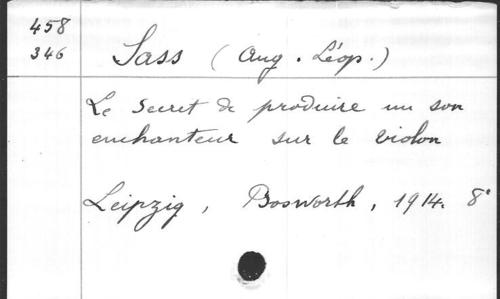 458
346
Sass (Aug. Léop.)
Le secret de produire un son
enchanteur sur le violon
Leipzig, Bosworth, 1914. 8°